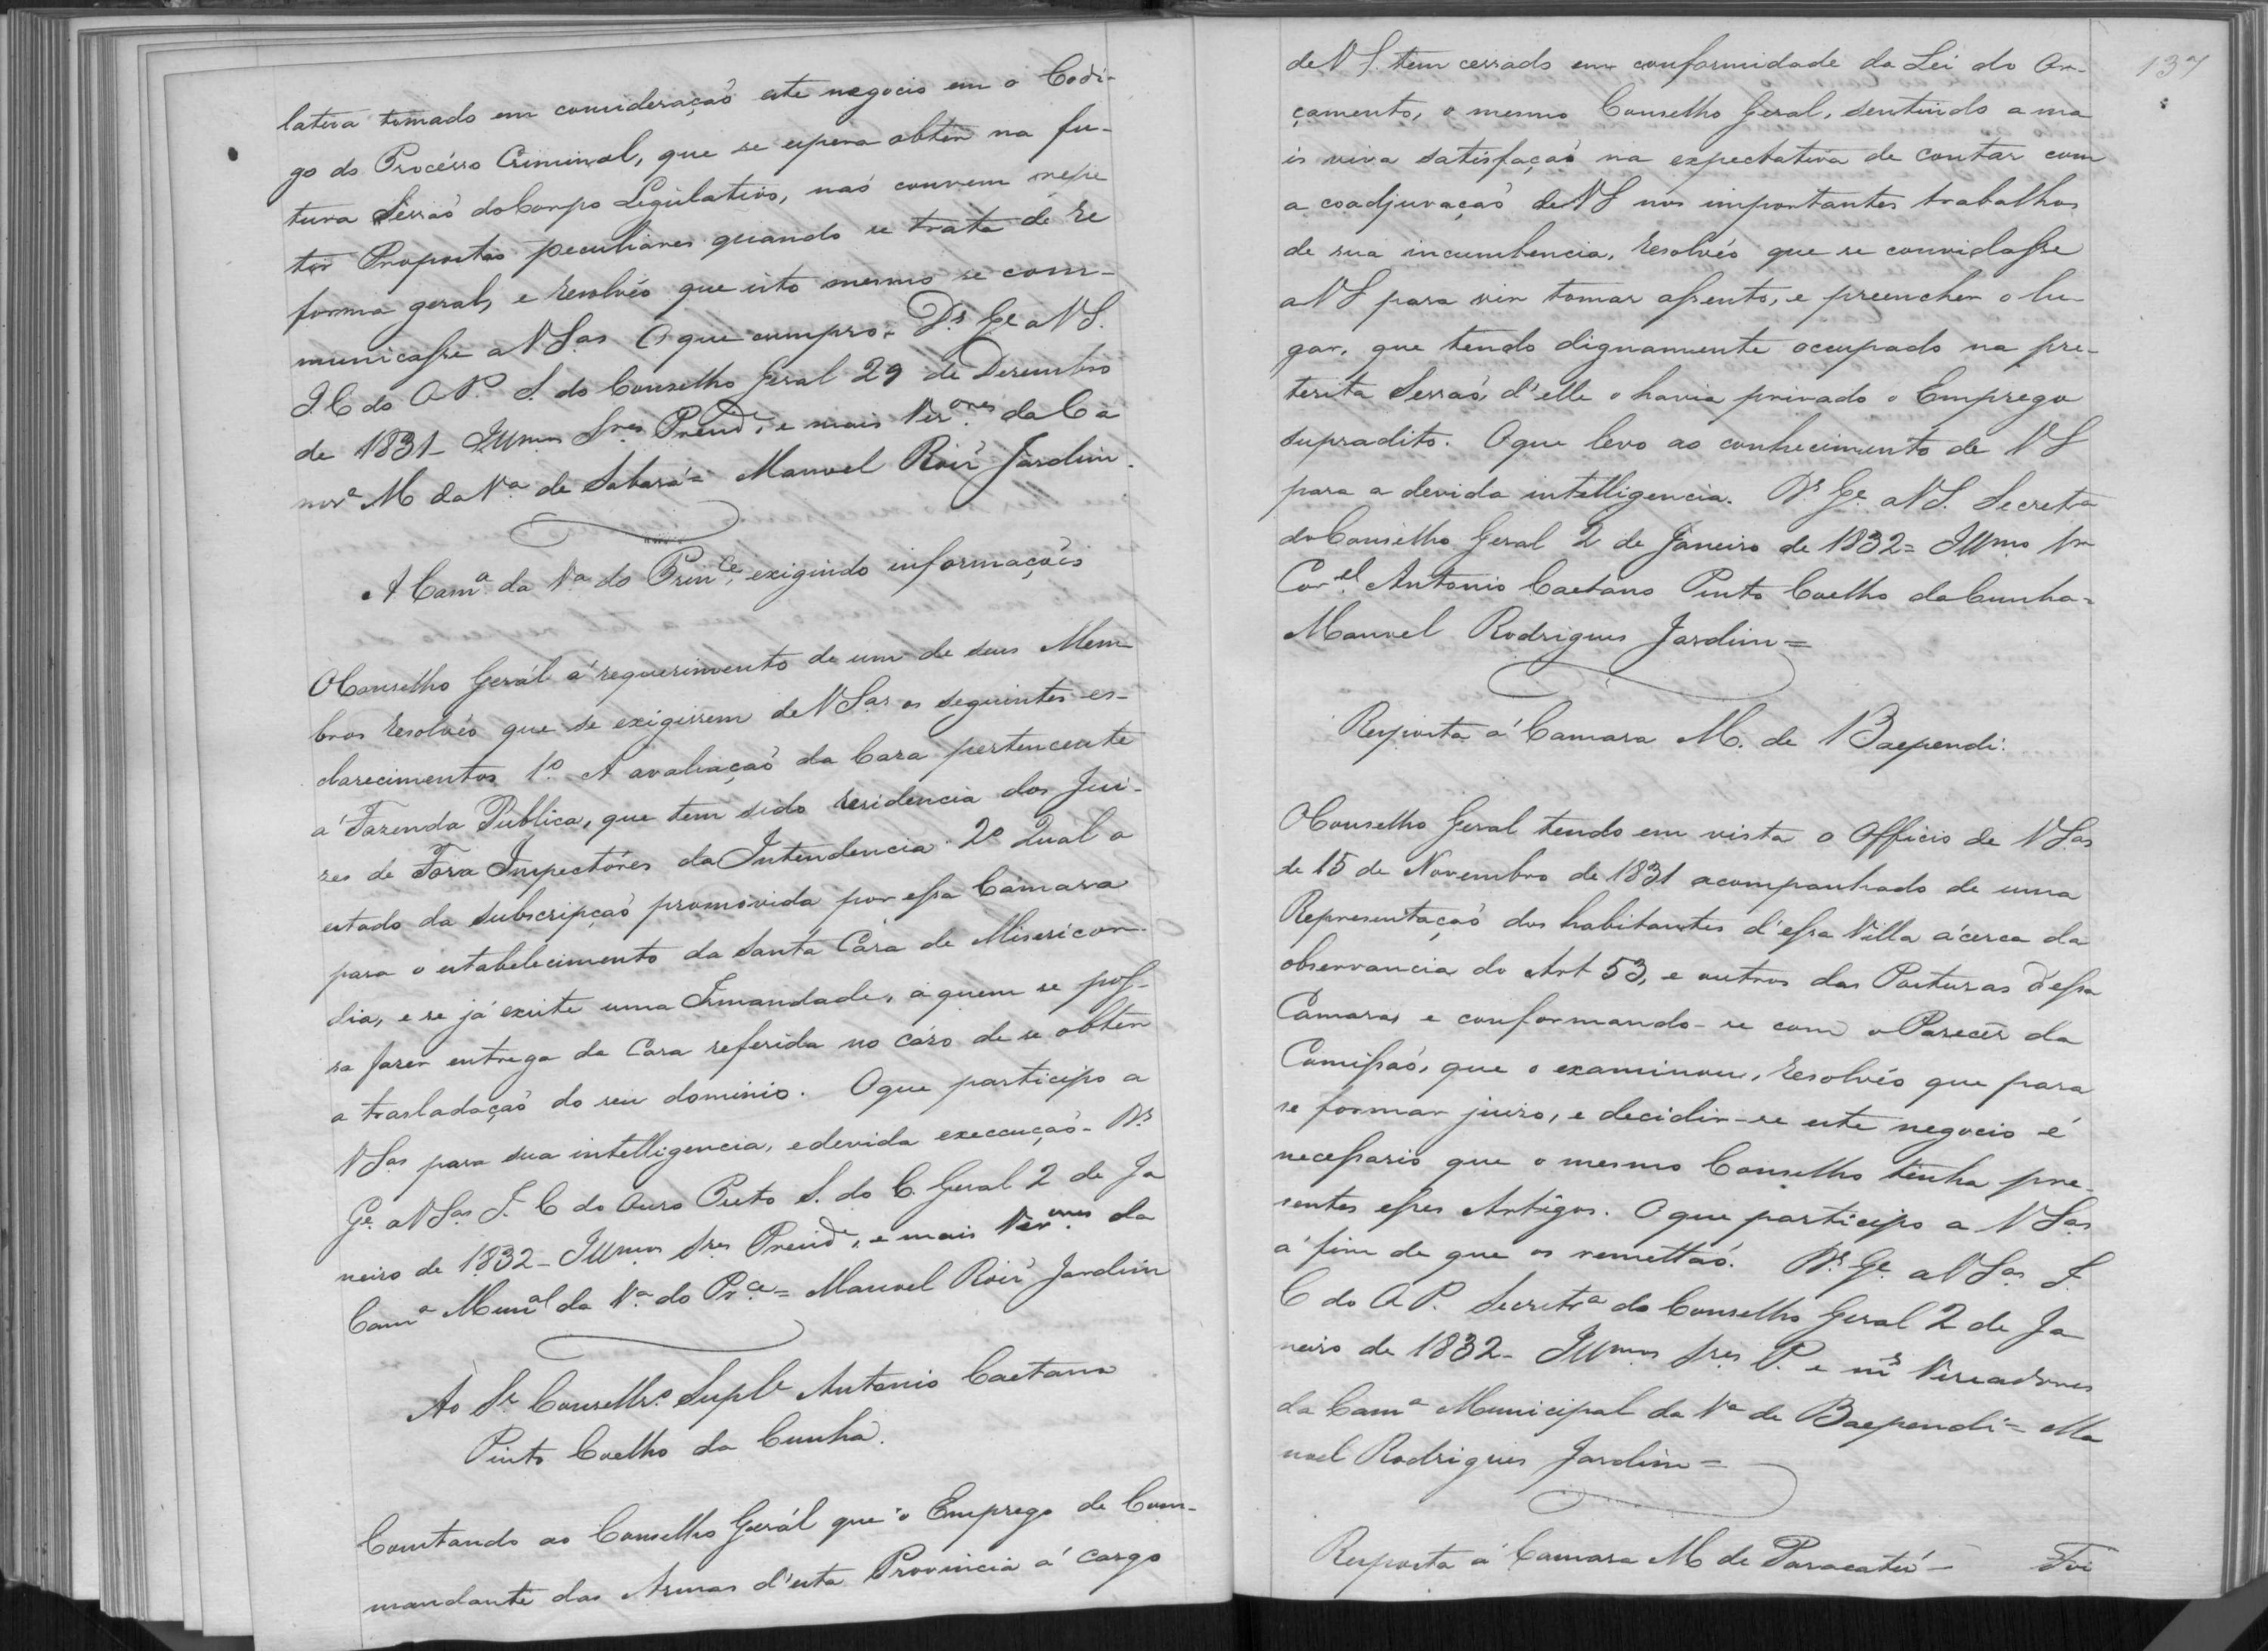 lativa tomado em consideraçaõ este negocio em o Codi-
go do Procésso Criminal, que se espera obter na fu-
tura Sessaõ do Corpo Legislativo, naõ convem repe
tir Propostas peculiares quando se trata de re
forma geral, e resolvéo que isto mesmo se com-
municasse a V Sas. O que cumpro. Ds. Ge a V S.
I. C do O P. S. do Conselho Geral 29 de Dezembro
de 1831 - Illmos Snres Presde, e mais Verores da Ca
mra M da Va de Sabará = Manoel Roiz Jardim.
A Cama da Va do Prince, exigindo informaçoẽs
O Conselho Gerál á requerimento de um de seus Mem
bros resolvéo que se exigissem de V Sas os seguintes es-
clarecimentos 1º A avaliaçaõ da Caza pertencente
a' Fazenda Publica, que tem sido residencia dos Jui-
zes de Fóra Inspectóres da Intendencia. 2º Qual o
estado da subscripçaõ promovida por essa Cámara
para o estabelecimento da Santa Cáza de Misericor-
dia, e se já existe uma Irmandade, a quem se pos-
sa fazer entrega da Caza referida no cázo de se obter
a trasladaçaõ do seu dominio. O que participo a
V Sas para sua intelligencia, e devida execcuçaõ - Ds
Ge. a V Sas I. C do Ouro Preto S. do C. Geral 2 de Ja
neiro de 1832 - Illmos Snres Preside, e mais Verores da
Cama Munal da Va do Prce = Manoel Roiz Jardim
Ao Sr Conselhro Suple Antonio Caetano
Pinto Coelho da Cunha.
Constando ao Conselho Gerál que o Emprego de Com-
mandante das Armas d'esta Provincia á cargo
137
de V S. tem cessado em conformidade da Lei do Or-
çamento, o mesmo Conselho Geral, sentindo a ma
is viva satisfaçaõ na expectativa de contar com
a coadjuvaçaõ de V S nos importantes trabalhos
de sua incumbencia, resolvéo que se convidasse
a V S para vir tomar assento, e preencher o lu-
gar, que tendo dignamente occupado na pre-
terita Sessaõ, d'elle o havia privado o Emprego
supradito. O que levo ao conhecimento de V S
para a devida intelligencia. Ds Ge a V S. Secreta
do Conselho Geral 2 de Janeiro de 1832 = Illmo Snr
Corel Antonio Caetano Pinto Coelho da Cunha =
Manoel Rodrigues Jardim =
Resposta á Camara M. de Baependi.
O Conselho Geral tendo em vista o Officio de V Sas
de 15 de Novembro de 1831 acompanhado de uma
Representaçaõ dos habitantes d'essa Villa ácerca da
observancia do Art 53, e outros das Posturas d'essa
Camara, e conformando-se com o Parecer da
Comissaõ, que o examinou, resolvéo que para
se formar juizo, e decidir-se este negocio é
necessario que o mesmo Conselho tenha pre-
sentes esses Artigos. O que participo a V Sas
a' fim de que os remettaõ. Ds Ge. a V Sas I.
C do O P. Secreta do Conselho Geral 2 de Ja
neiro de 1832 - Illmos Snres P. e ms Vereadores
da Cama Municipal da Va de Baependi = Ma
noel Rodrigues Jardim =
Resposta á Camara M de Paracatú - Foi